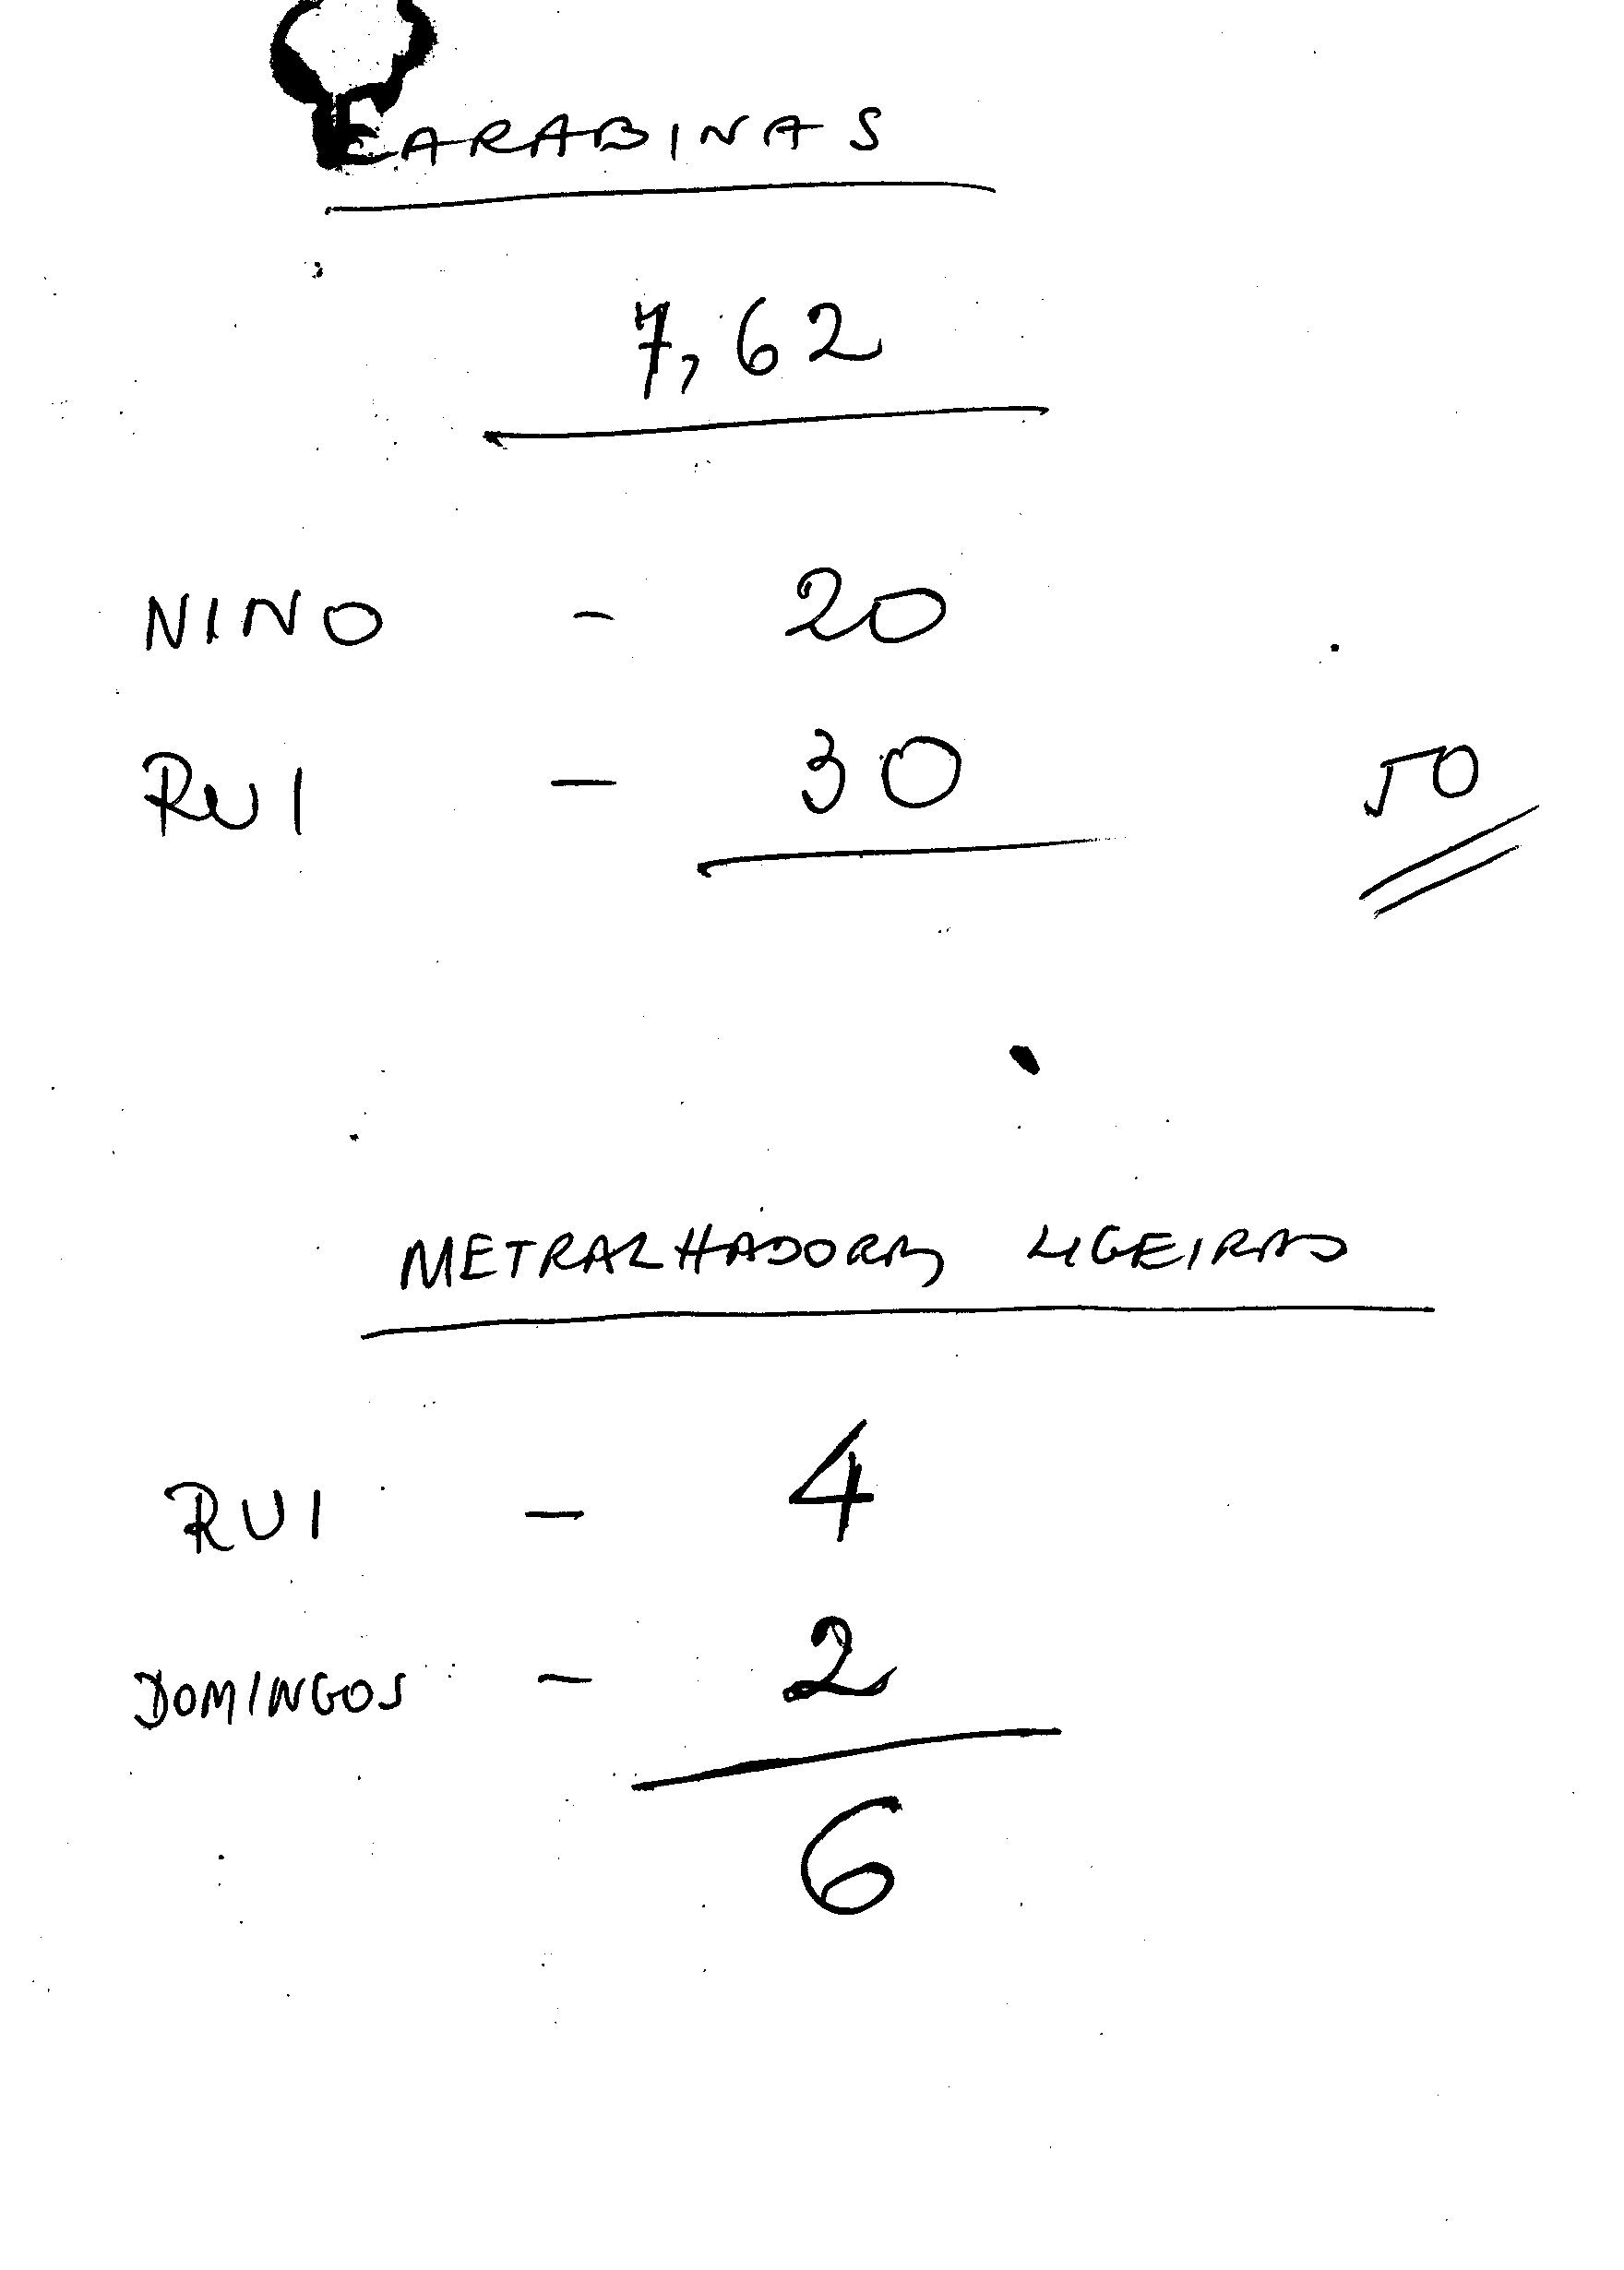 CARABINAS
7,62
NINO - 20
RUI - 30 50
METRALHADORAS LIGEIRAS
RUI - 4
DOMINGOS - 2
6